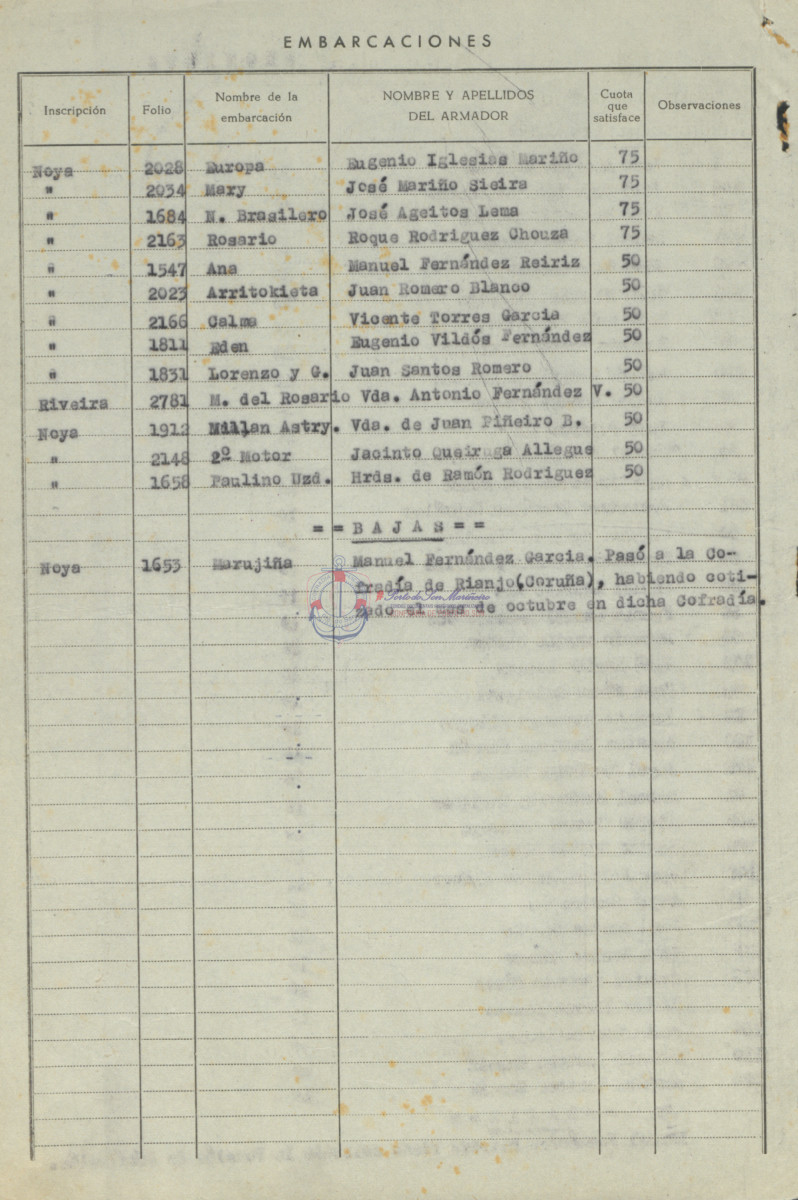 EMBARCACIONES
Inscripción Folio Nombre de la embarcación NOMBRE Y APELLIDOS DEL ARMADOR Cuota que satisface Observaciones
Noya 2028 Europa Eugenio Iglesias Mariño 75
" 2034 Mary José Mariño Sieira 75
" 1684 N. Brasilero José Ageitos Lema 75
" 2163 Rosario Roque Rodriguez Chouza 75
" 1547 Ana Manuel Fernández Reiriz 50
" 2023 Arritokieta Juan Romero Blanco 50
" 2166 Celma Vicente Torres Garcia 50
" 1811 Eden Eugenio Vildós Fernández 50
" 1831 Lorenzo y G. Juan Santos Romero 50
Riveira 2781 M. del Rosario Vda. Antonio Fernández V. 50
Noya 1912 Millan Astry. Vda. de Juan Piñeiro B. 50
" 2148 2º Motor Jacinto Queiruga Allegue 50
" 1658 Paulino Uzd. Hrds. de Ramón Rodriguez 50
= = B A J A S = =
Noya 1653 Marujiña Manuel Fernández Garcia. Pasó a la Co-
fradía de Rianjo(Coruña), habiendo coti-
zado el mes de octubre en dicha Cofradía.
Porto do Son Mariñeiro